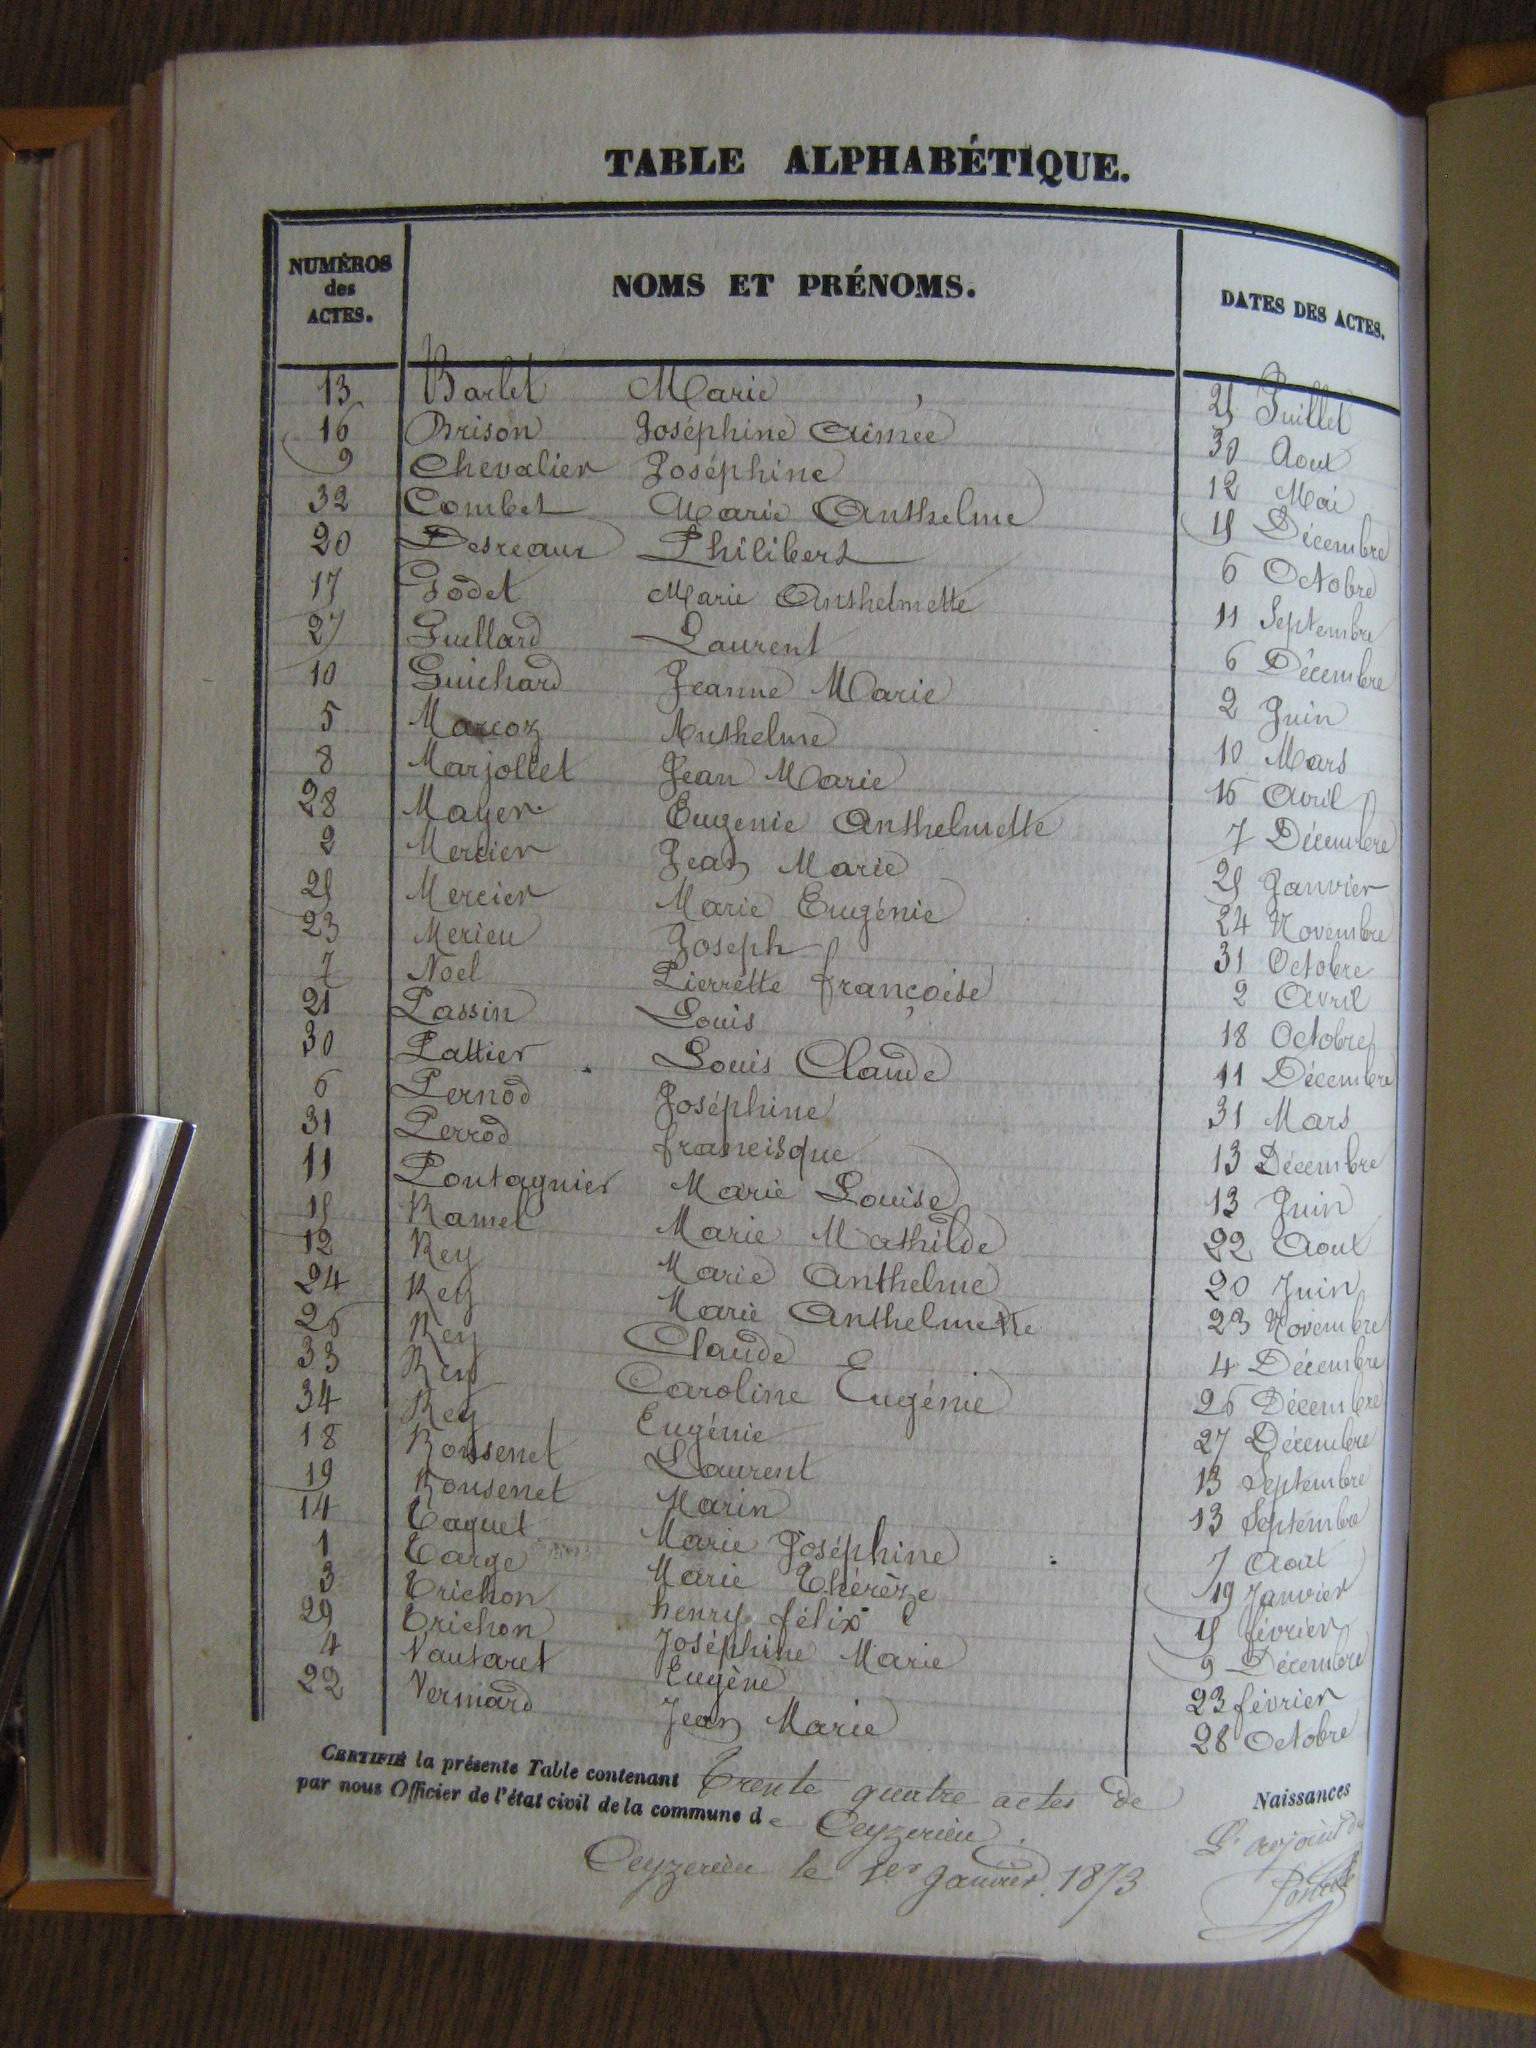 TABLE ALPHABÉTIQUE.
NUMÉROS des ACTES. NOMS ET PRÉNOMS. DATES DES ACTES.
13 Barlet Marie 25 Juillet
16 Brison Joséphine Aimée 30 Aout
9 Chevalier Joséphine 12 Mai
32 Combet Marie Anthelme 15 Décembre
20 Desreaux Philibert 6 Octobre
17 Godet Marie Anthelmette 11 Septembre
27 Guillard Laurent 6 Décembre
10 Guichard Jeanne Marie 2 Juin
5 Marcoz Anthelme 10 Mars
8 Marjollet Jean Marie 16 Avril
28 Mayer Eugenie Anthelmette 7 Décembre
2 Mercier Jean Marie 25 Janvier
25 Mercier Marie Eugénie 24 Novembre
23 Merieu Joseph 31 Octobre
7 Noel Pierrette françoise 2 Avril
21 Passin Louis 18 Octobre
30 Pattier Louis Claude 11 Décembre
6 Pernod Joséphine 31 Mars
31 Perrod francisque 13 Décembre
11 Pontagnier Marie Louise 13 Juin
15 Ramel Marie Mathilde 22 Aout
12 Rey Marie Anthelme 20 Juin
24 Rey Marie Anthelmette 23 Novembre
26 Rey Claude 4 Décembre
33 Rey Caroline Eugénie 26 Décembre
34 Rey Eugénie 27 Décembre
18 Rousenet Laurent 13 Septembre
19 Rousenet Marin 13 Septembre
14 Taquet Marie Joséphine 7 Aout
1 Targe Marie Thérèze 19 Janvier
3 Trichon henry félix 15 février
29 Trichon Joséphine Marie 9 Décembre
4 Vautaret Eugène 23 février
22 Vermard Jean Marie 28 Octobre
CERTIFIÉ la présente Table contenant Trente quatre actes de Naissances
par nous Officier de l'état civil de la commune de Ceyzerieu.
Ceyzerieu le 1er Janvier 1873